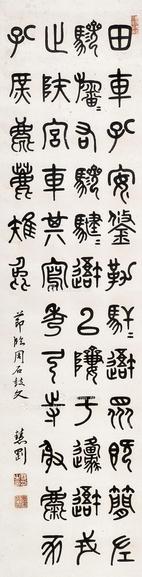 田車孔安鋚勒馯=䢒眾既簡左
驂旛=右驂騝=䢒以隮于邍䢒戎
止陝宮車其寫秀弓寺射麋豕
孔庶麀鹿雉兔
節臨周石鼓文